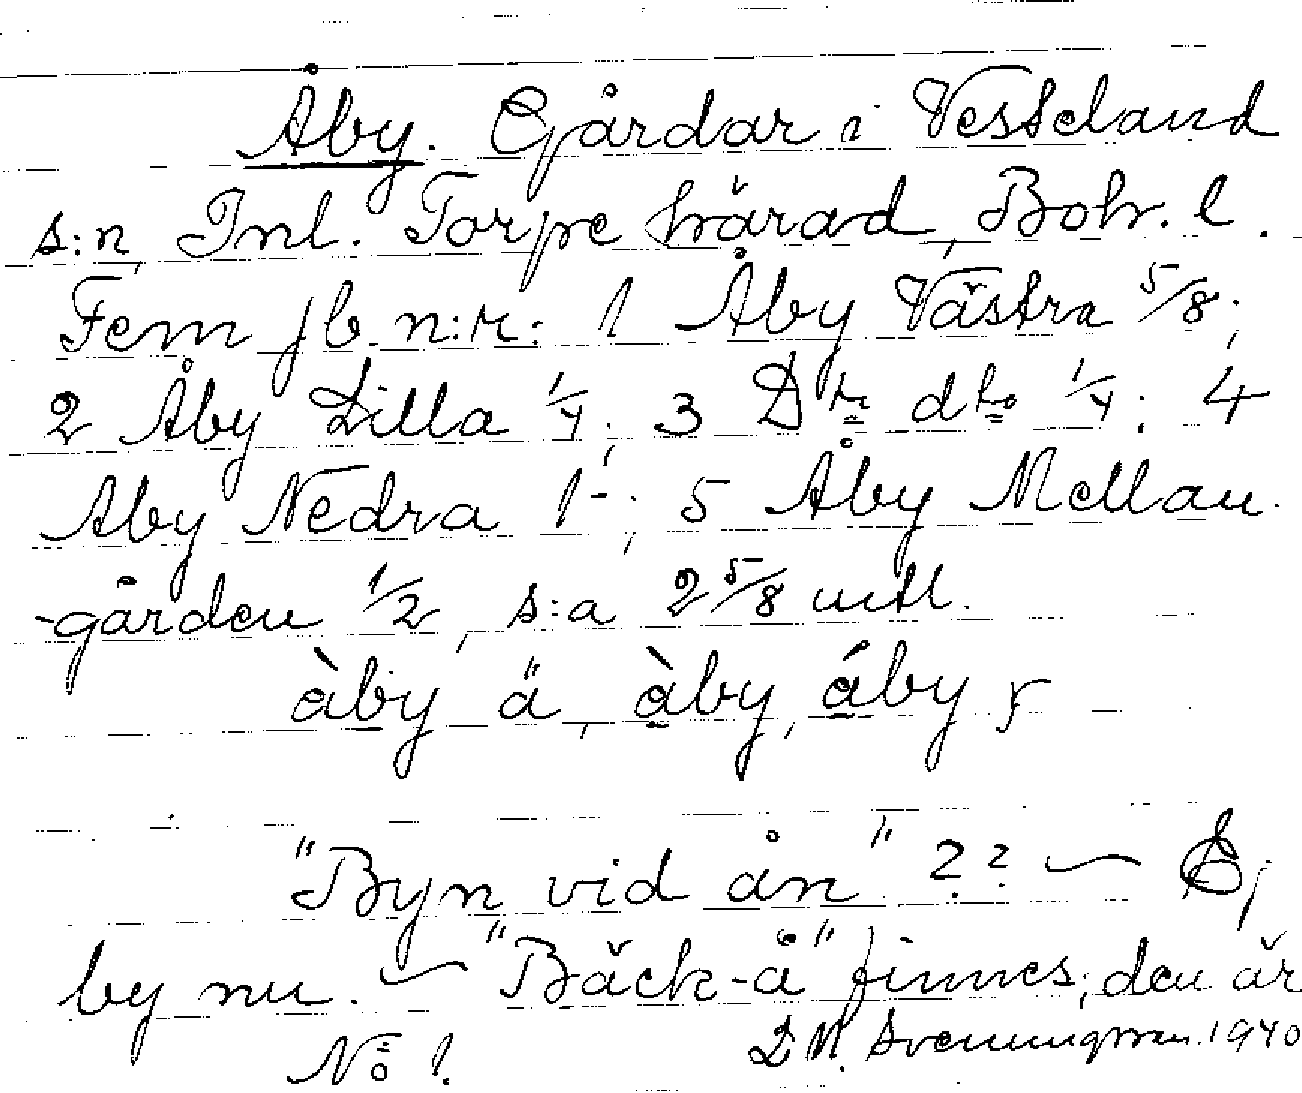 Åby. Gårdar i Vesseland
s:n, Inl. Torpe härad, Boh. l.
Fem jb. n:r: 1 Åby Västra 5/8;
2 Åby Lilla 1/4; 3 D:r d:o 1/4; 4
Åby Nedra 1-; 5 Åby Mellan-
-gården 1/2, s:a 2 5/8 mtl.
àby ä, àby, áby
"Byn vid ån" ?? — Ej
by nu. — "Bäck-å" finnes; den är
No 1. D. M. Svenningsson. 1940